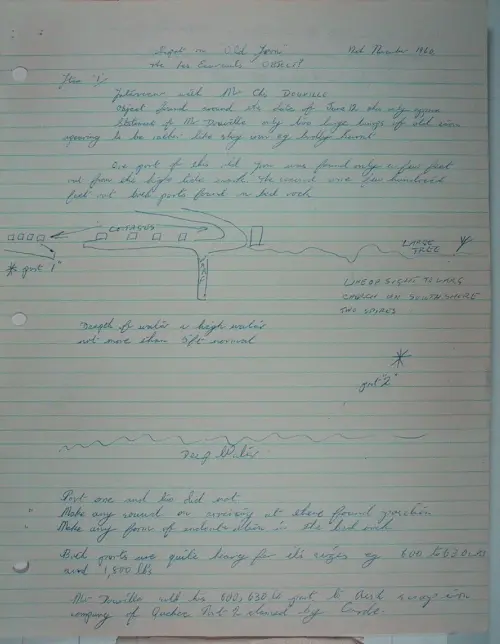 Report on "Old Iron" 22nd November 1960
the Les Ecureuils OBJECT?
Item "1"
Interview with Mr Chs Douville
Object found around the date of June 12. the only
statement to Mr Douville only two large lumps of old iron
appearing to be rather like they were badly burnt
One part of this old iron was found only a few feet
out from the high tide mark. The second one hundred
feet out both parts found in bed rock
COTTAGES
LARGE
TREE
* part "1"
LINE OF SIGHT TOWARDS
CHURCH ON SOUTH SHORE
TWO SPIRES
Depth of water in high water
not more than 5ft normal
part "2"
Deep Water
Part one and two did not
" Make any sound on arriving at there found position
" Make any form of indentation in the bed rock
Both parts are quite heavy for its sizes eg 600 to 630 LBS
and 1,800 lbs
Mr Douville sold the 600, 630 lb part to scrap iron
company of Quebec Part 2 claimed by